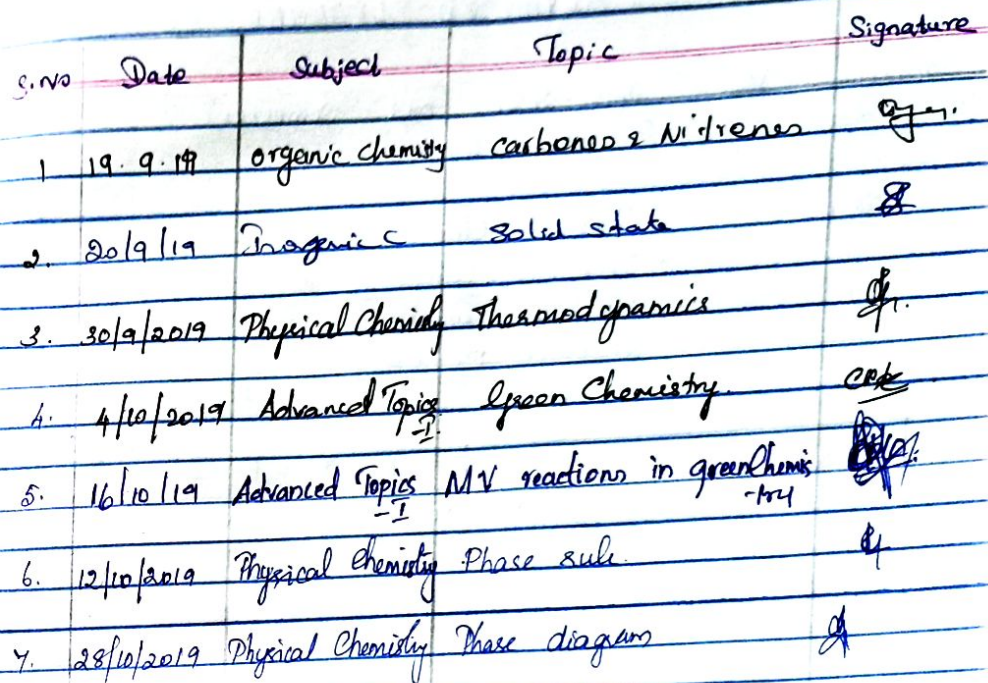 S.No Date Subject Topic Signature
1 19.9.19 organic chemistry carbenes & Nitrenes
2. 20/9/19 Inorganic C Solid state
3. 30/9/2019 Physical Chemistry Thermodynamics
4. 4/10/2019 Advanced Topics Green Chemistry.
-I
5. 16/10/19 Advanced Topics MV reactions in green Chemis
-I -try
6. 12/10/2019 Physical Chemistry Phase rule.
7. 28/10/2019 Physical Chemistry Phase diagram